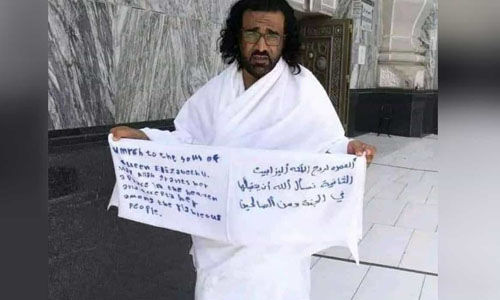 Umrah to the soul of
Queen Elizabeth II,
May Allah grants her
a place in the heaven
and accepts her
among the righteous
people.
العمره لروح الملكه اليزابيت
الثانية نسأل الله ان يتقبلها
في الجنة ومن الصالحين